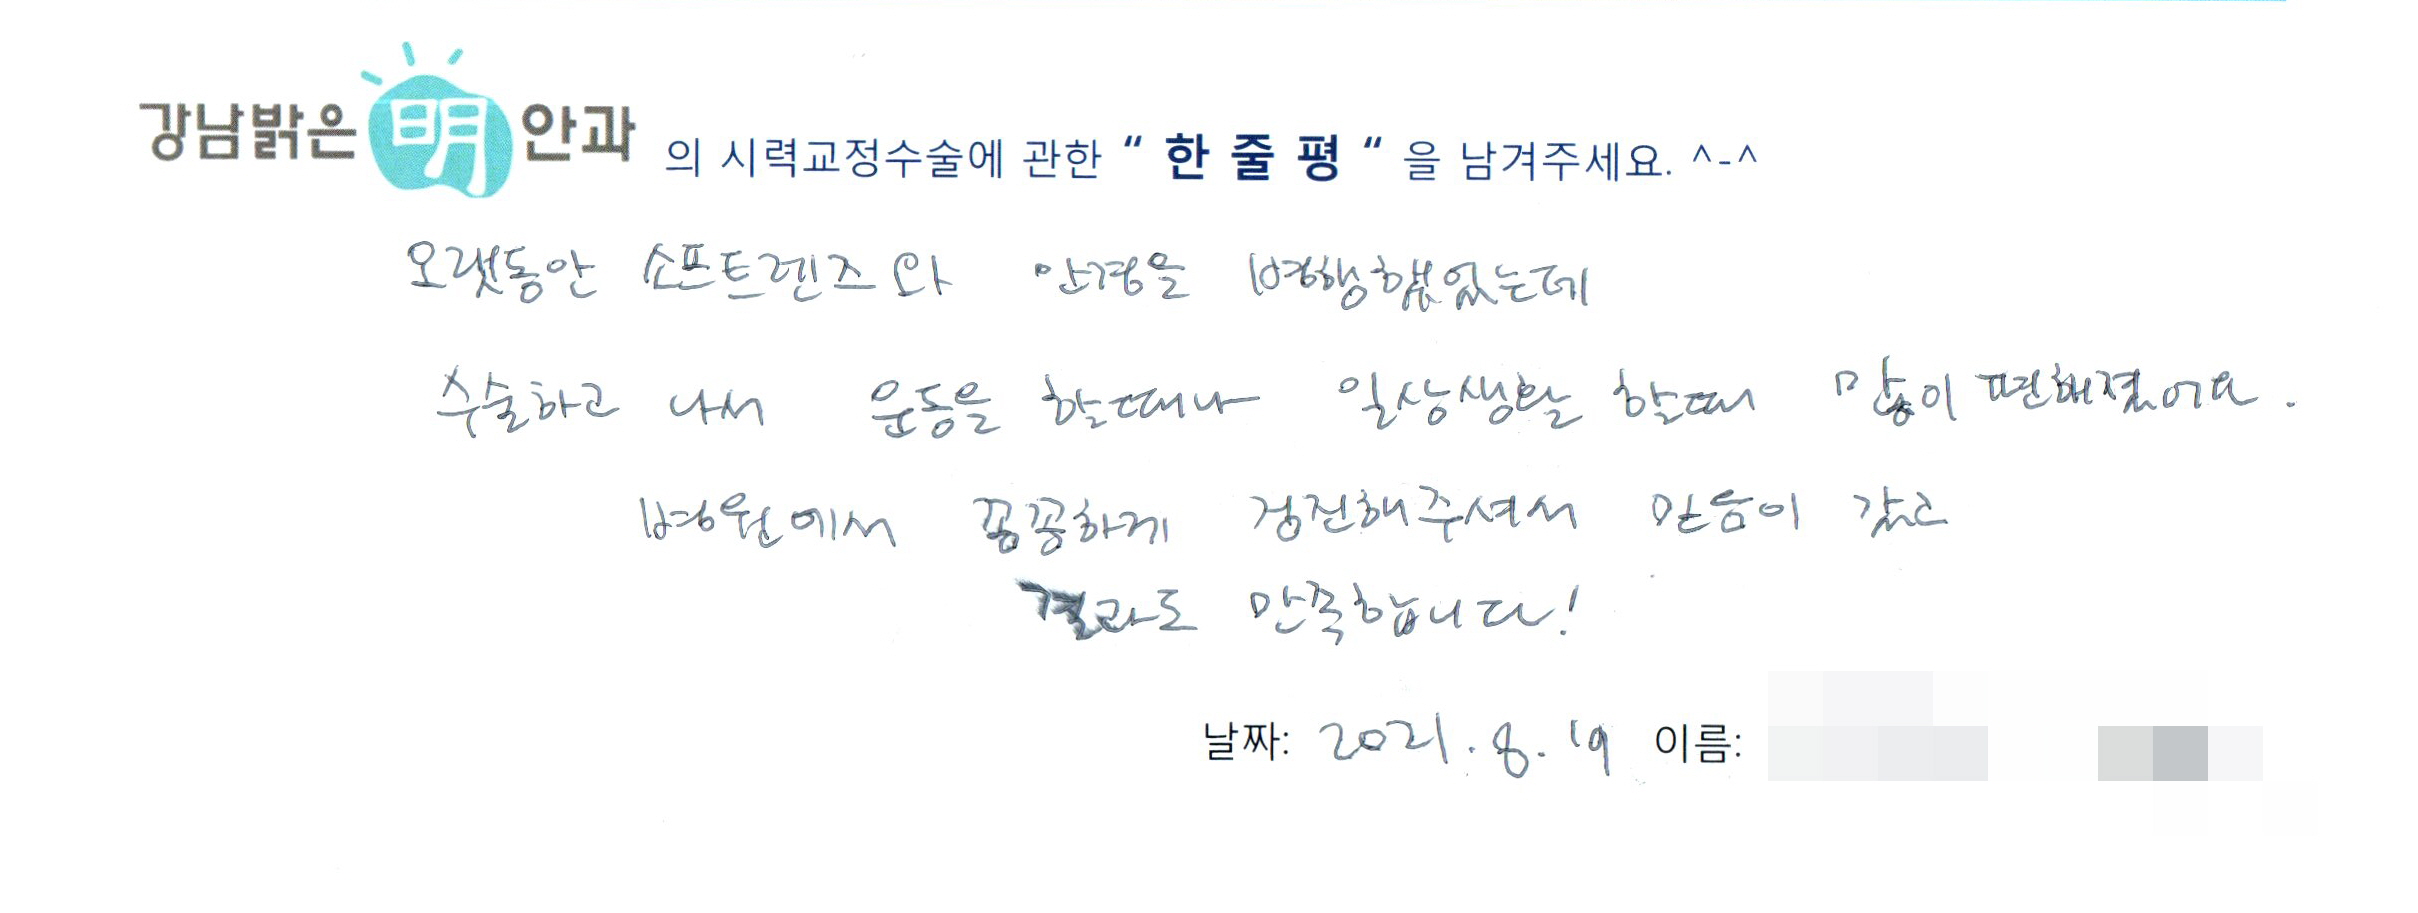 강남밝은明안과 의 시력교정수술에 관한 “ 한 줄 평 “ 을 남겨주세요. ^-^
오랫동안 소프트렌즈와 안경을 병행했었는데
수술하고 나서 운동을 할때나 일상생활 할때 많이 편해졌어요.
병원에서 꼼꼼하게 검진해주셔서 믿음이 갔고
결과도 만족합니다!
날짜: 2021. 8. 19 이름: